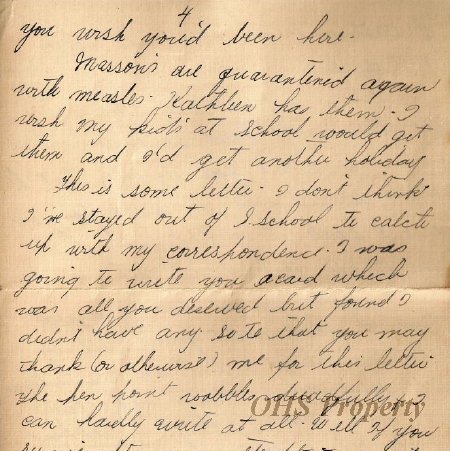 4
you wish you'd been here.
Massons are quarantened again
with measles. Kathleen has them. I
wish my kids at school would get
them and I'd get another holiday
This is some letter. I don't think
I've stayed out of S. school to catch
up with my correspondence. I was
going to write you a card which
was all you deserved but found I
didn't have any so to that you may
thank (or otherwise) me for this letter
The pen point wobbles dreadfully & I
can hardly write at all. Well if you
OHS Property